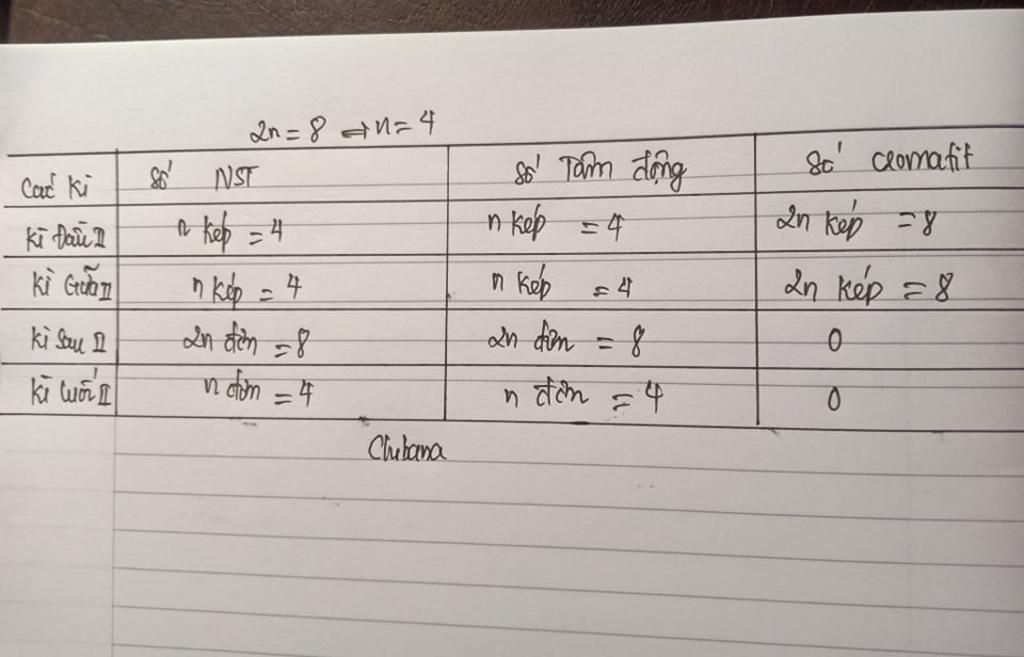 2n = 8 ⇒ n = 4
Các kì số NST số Tâm động số cromatit
Kì Đầu II n kép = 4 n kép = 4 2n kép = 8
Kì Giữa II n kép = 4 n kép = 4 2n kép = 8
Kì Sau II 2n đơn = 8 2n đơn = 8 0
Kì Cuối II n đơn = 4 n đơn = 4 0
Chibana